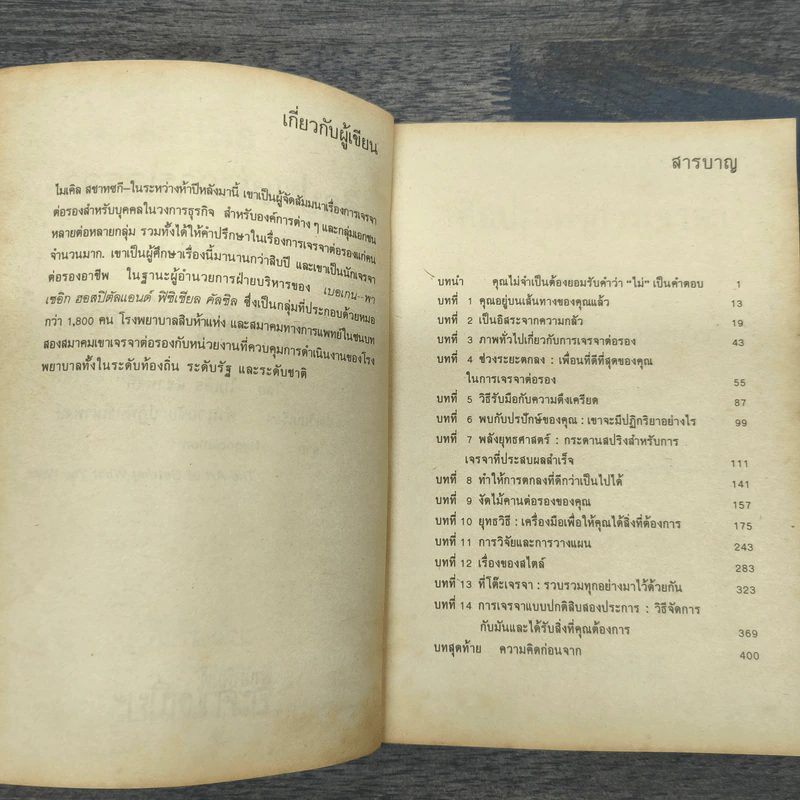 เกี่ยวกับผู้เขียน
ไมเคิล สชาทซกี—ในระหว่างห้าปีหลังมานี้ เขาเป็นผู้จัดสัมมนาเรื่องการเจรจา
ต่อรองสำหรับบุคคลในวงการธุรกิจ สำหรับองค์การต่าง ๆ และกลุ่มเอกชน
หลายต่อหลายกลุ่ม รวมทั้งได้ให้คำปรึกษาในเรื่องการเจรจาต่อรองแก่คน
จำนวนมาก. เขาเป็นผู้ศึกษาเรื่องนี้มานานกว่าสิบปี และเขาเป็นนักเจรจา
ต่อรองอาชีพ ในฐานะผู้อำนวยการฝ่ายบริหารของ เบอเกน—พา
เซอิก ฮอสปิตัลแอนด์ ฟิซิเชียล คัลซิล ซึ่งเป็นกลุ่มที่ประกอบด้วยหมอ
กว่า 1,800 คน โรงพยาบาลสิบห้าแห่ง และสมาคมทางการแพทย์ในชนบท
สองสมาคมเขาเจรจาต่อรองกับหน่วยงานที่ควบคุมการดำเนินงานของโรง
พยาบาลทั้งในระดับท้องถิ่น ระดับรัฐ และระดับชาติ
สารบาญ
บทนำ คุณไม่จำเป็นต้องยอมรับคำว่า “ไม่” เป็นคำตอบ 1
บทที่ 1 คุณอยู่บนเส้นทางของคุณแล้ว 13
บทที่ 2 เป็นอิสระจากความกลัว 19
บทที่ 3 ภาพทั่วไปเกี่ยวกับการเจรจาต่อรอง 43
บทที่ 4 ช่วงระยะตกลง : เพื่อนที่ดีที่สุดของคุณ
ในการเจรจาต่อรอง 55
บทที่ 5 วิธีรับมือกับความตึงเครียด 87
บทที่ 6 พบกับปรปักษ์ของคุณ : เขาจะมีปฏิกริยาอย่างไร 99
บทที่ 7 พลังยุทธศาสตร์ : กระดานสปริงสำหรับการ
เจรจาที่ประสบผลสำเร็จ 111
บทที่ 8 ทำให้การตกลงที่ดีกว่าเป็นไปได้ 141
บทที่ 9 งัดไม้คานต่อรองของคุณ 157
บทที่ 10 ยุทธวิธี : เครื่องมือเพื่อให้คุณได้สิ่งที่ต้องการ 175
บทที่ 11 การวิจัยและการวางแผน 243
บทที่ 12 เรื่องของสไตล์ 283
บทที่ 13 ที่โต๊ะเจรจา : รวบรวมทุกอย่างมาไว้ด้วยกัน 323
บทที่ 14 การเจรจาแบบปกติสิบสองประการ : วิธีจัดการ
กับมันและได้รับสิ่งที่คุณต้องการ 369
บทสุดท้าย ความคิดก่อนจาก 400